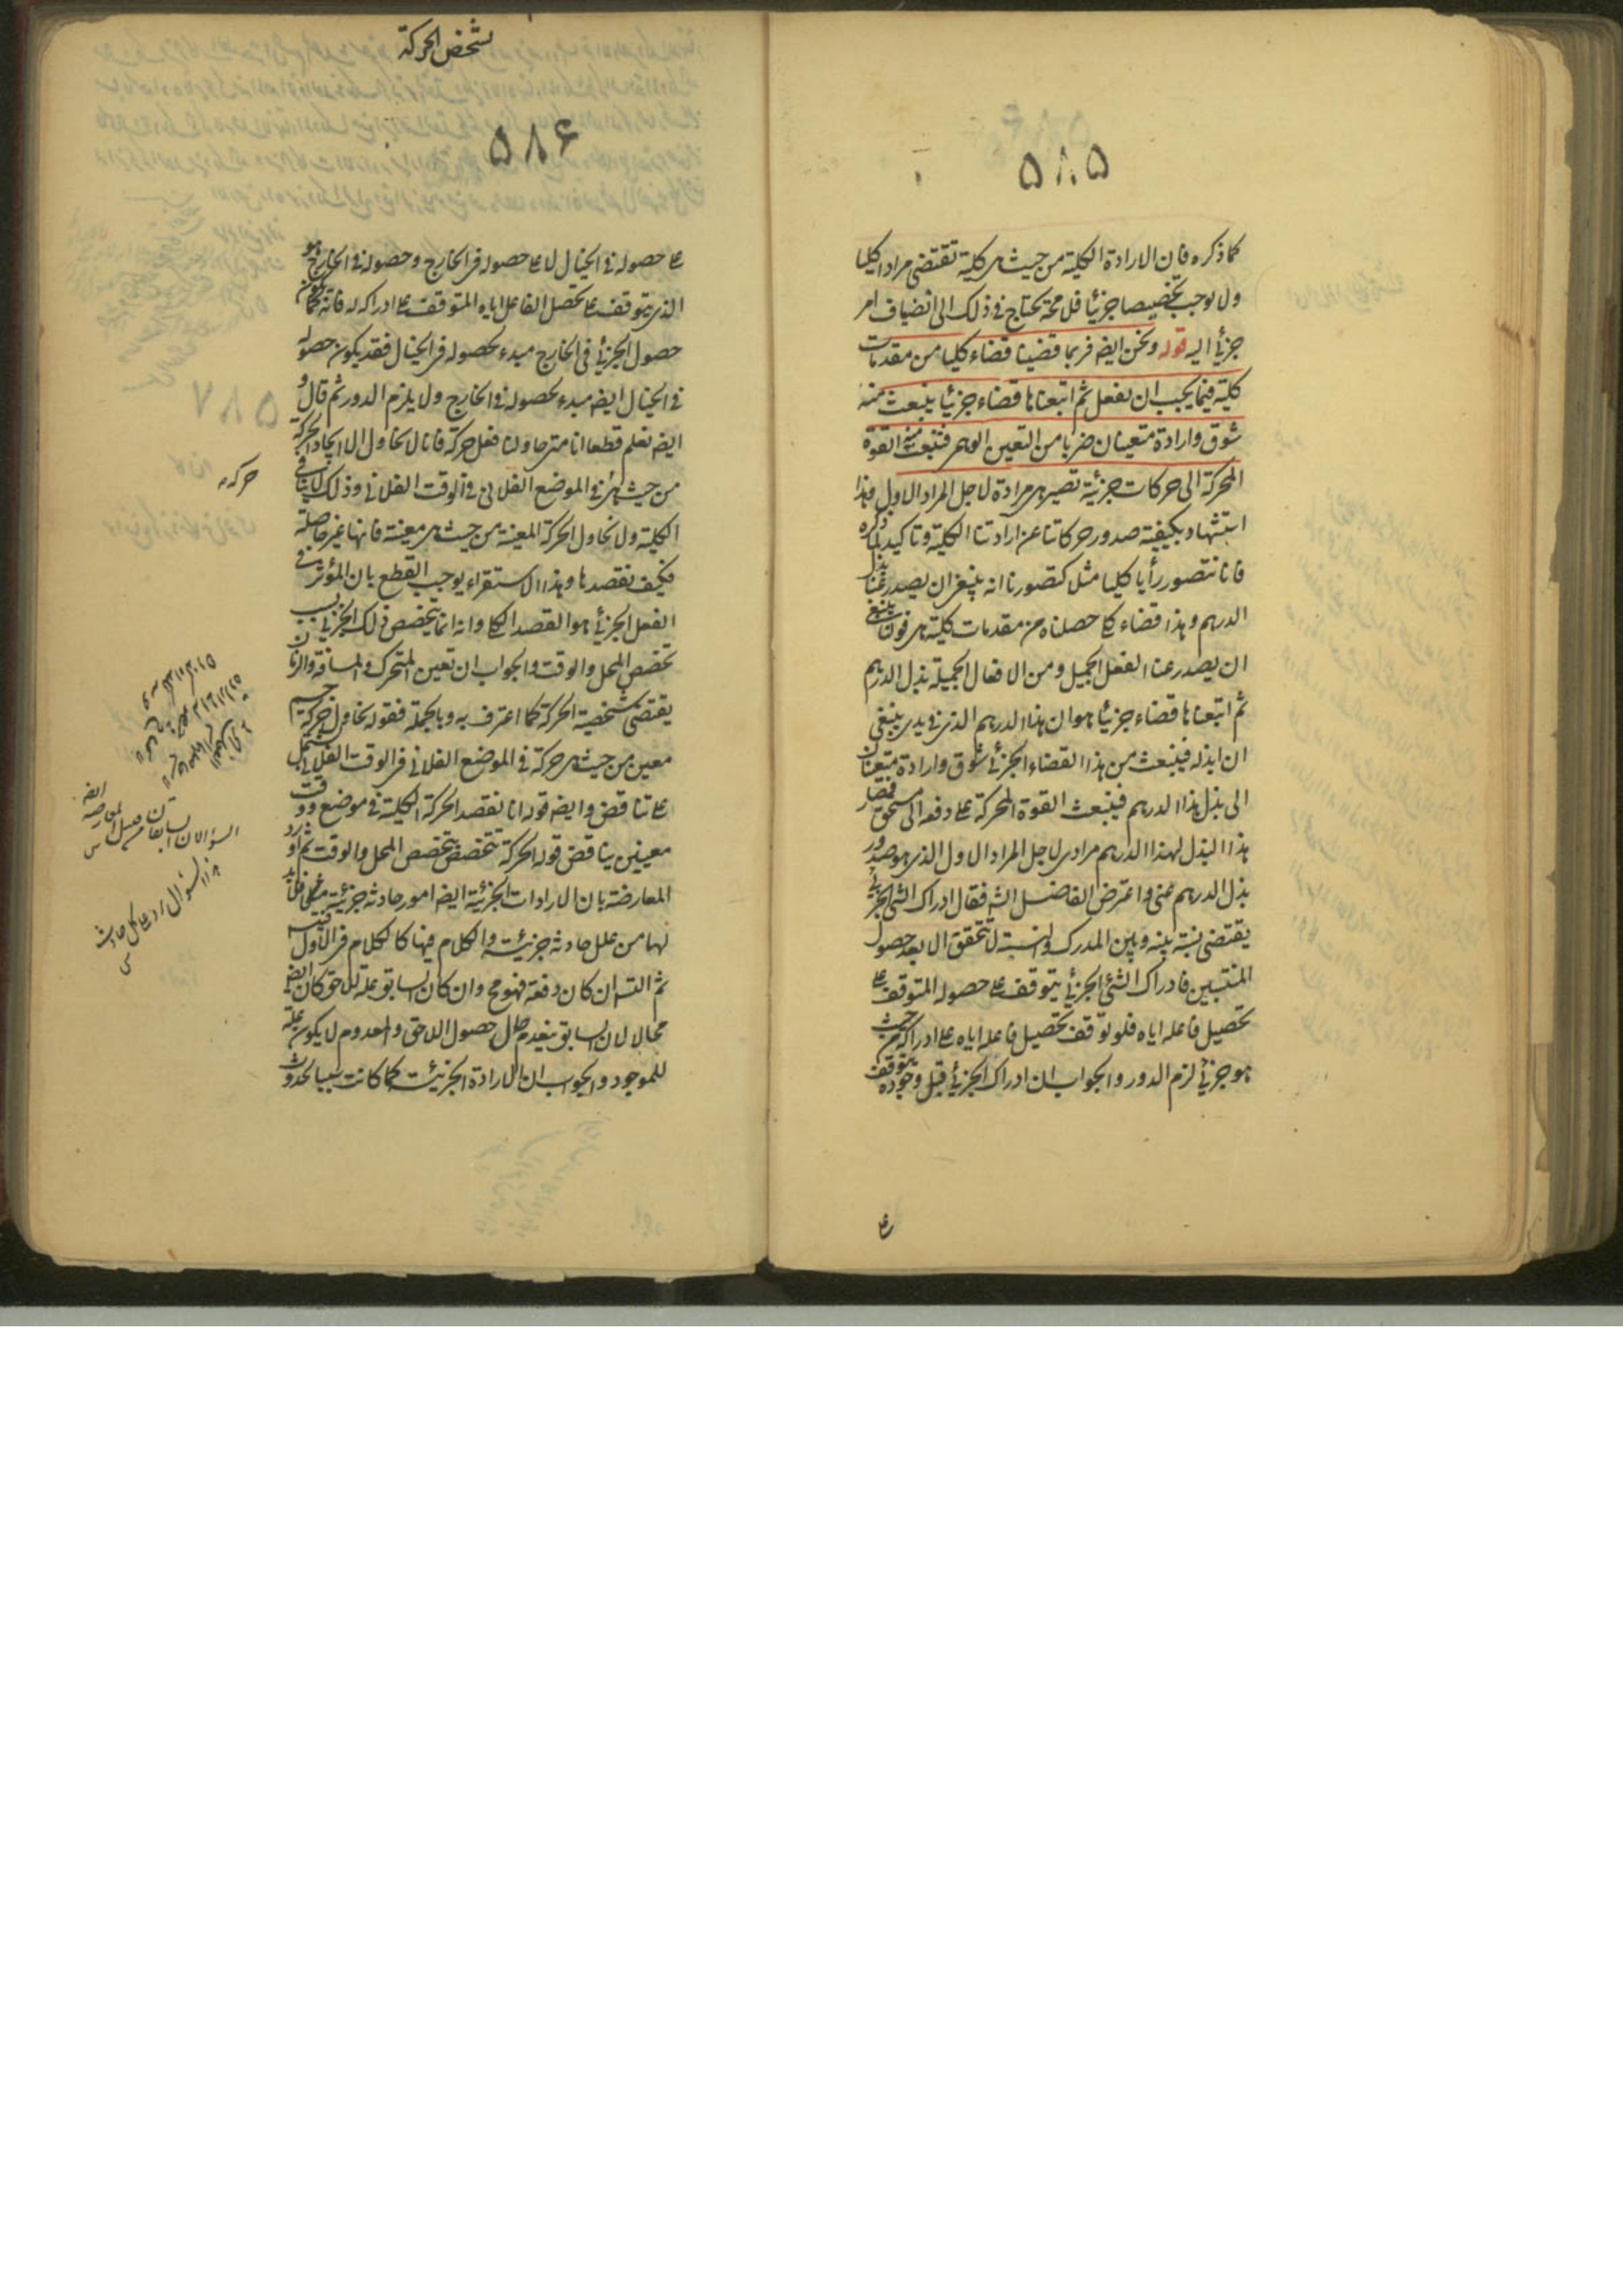 ۵۸۵
كما ذكره فان الارادة الكلية من حيث هى كلية تقتضى مرادا كليا
ولا يوجب تخصيصا جزئيا فلا محة يحتاج فى ذلك الى انضياف امر
جزئى اليه قوله ونحن ايضا فربما قضينا قضاء كليا من مقدمات
كلية فيما يجب ان نفعل ثم اتبعناها قضاء جزئيا ينبعث منه
شوق وارادة متعينان ضربا من التعين الوهمى فتنبعث منه القوة
المحركة الى حركات جزئية تصير هى مرادة لاجل المراد الاول هذا
استشهاد بكيفية صدور حركاتنا عن ارادتنا الكلية وتاكيد لما ذكره
فانا نتصور رأيا كليا مثل كتصورنا انه ينبغى ان يصدر عنا بذل
الدرهم وهذا قضاء كلى حصلناه من مقدمات كلية هى قولنا ينبغى
ان يصدر عنا الفعل الجميل ومن الافعال الجميلة بذل الدرهم
ثم اتبعناها قضاء جزئيا هو ان هذا الدرهم الذى فى يدى ينبغى
ان ابذله فينبعث من هذا القضاء الجزئى شوق وارادة متعينان
الى بذل هذا الدرهم فينبعث القوة المحركة على دفعه الى مستحق فصار
هذا البذل لهذا الدرهم مرادى لاجل المراد الاول الذى هو صدور
بذل الدرهم عنى واعترض الفاضل الشه فقال ادراك الشئ الجزئى
يقتضى نسبة بينه وبين المدرك والنسبة لا تتحقق الا بعد حصول
المنتسبين فادراك الشئ الجزئى يتوقف على حصوله المتوقف على
تحصيل فاعله اياه فلو توقف تحصيل فاعله اياه على ادراكه من حيث
هو جزئى لزم الدور والجواب ان ادراك الجزئى قبل وجوده يتوقف
تشخص الحركة
۵۸۶
على حصوله فى الخيال لا على حصوله فى الخارج وحصوله فى الخارج هو
الذى يتوقف على تحصيل الفاعل اياه المتوقف على ادراكه له فانه كما يكون
حصول الجزئى فى الخارج مبدء لحصوله فى الخيال فقد يكون حصوله
فى الخيال ايضا مبدء لحصوله فى الخارج ولا يلزم الدور ثم قال و
ايضا نعلم قطعا انا متى حاولنا فعل حركة فانا لا نحاول الا ايجاد الحركة
من حيث هى فى الموضع الفلانى فى الوقت الفلانى وذلك لا ينافى
الكلية ولا نحاول الحركة المعينة من حيث هى معينة فانها غير حاصلة
فكيف نقصدها وهذا الاستقراء يوجب القطع بان المؤثر فى
الفعل الجزئى هو القصد الكلى وانه انما يتخصص ذلك الجزئى بسبب
تخصص المحل والوقت والجواب ان تعين المتحرك والمسافة والزمان
يقتضى شخصية الحركة كما اعترف به وبالجملة فقوله نحاول حركة جسم
معين من حيث هى حركة فى الموضع الفلانى فى الوقت الفلانى يشتمل
على تناقض وايضا قوله انا نقصد الحركة الكلية فى موضع ووقت
معينين يناقض قوله الحركة تتخصص بتخصص المحل والوقت ثم اورد
المعارضة بان الارادات الجزئية ايضا امور حادثة جزئية فلابد
لها من علل حادثة جزئية والكلام فيها كالكلام فى الاول
ثم التسه ان كان دفعة فهو مح وان كان السابق علة للاحق كان ايضا
محالا لان السابق ينعدم حال حصول اللاحق والمعدوم لا يكون علة
للموجود والجواب ان الارادة الجزئية كما كانت سببا لحدوث
حركه
السؤالان السابقان من قبيل المعارضة ايضا
هذا السؤال يرد على كل حادث